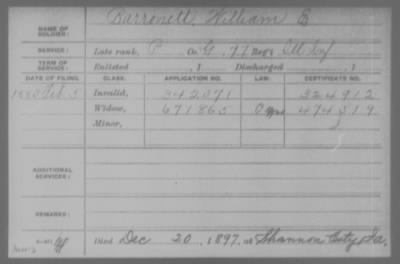 NAME OF SOLDIER: Barronett, William E
SERVICE: Late rank, P Co. G, 77 Reg't Ill Inf
TERM OF SERVICE: Enlisted , 1 Discharged , 1
DATE OF FILING. CLASS. APPLICATION NO. LAW. CERTIFICATE NO.
1880 Feb 5 Invalid, 342071 324912
Widow, 671865 474519
Minor,
ADDITIONAL SERVICES:
REMARKS:
Died Dec 20, 1897, at Shannon City, Ia.